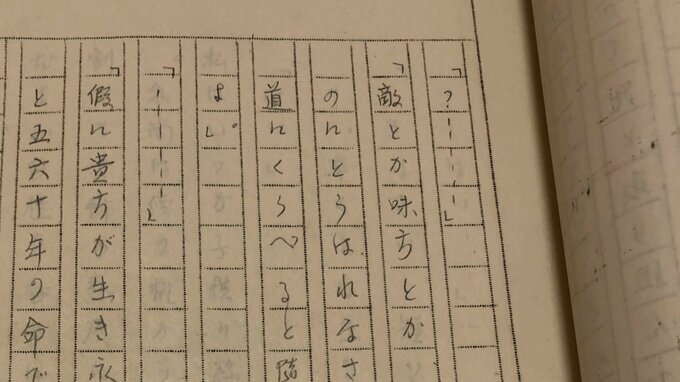 「?――――」
「敵とか味方とか
のにとらはれなさ
道にくらべると
は」。
「――――」
「假に貴方が生き永
と五六十年の命で